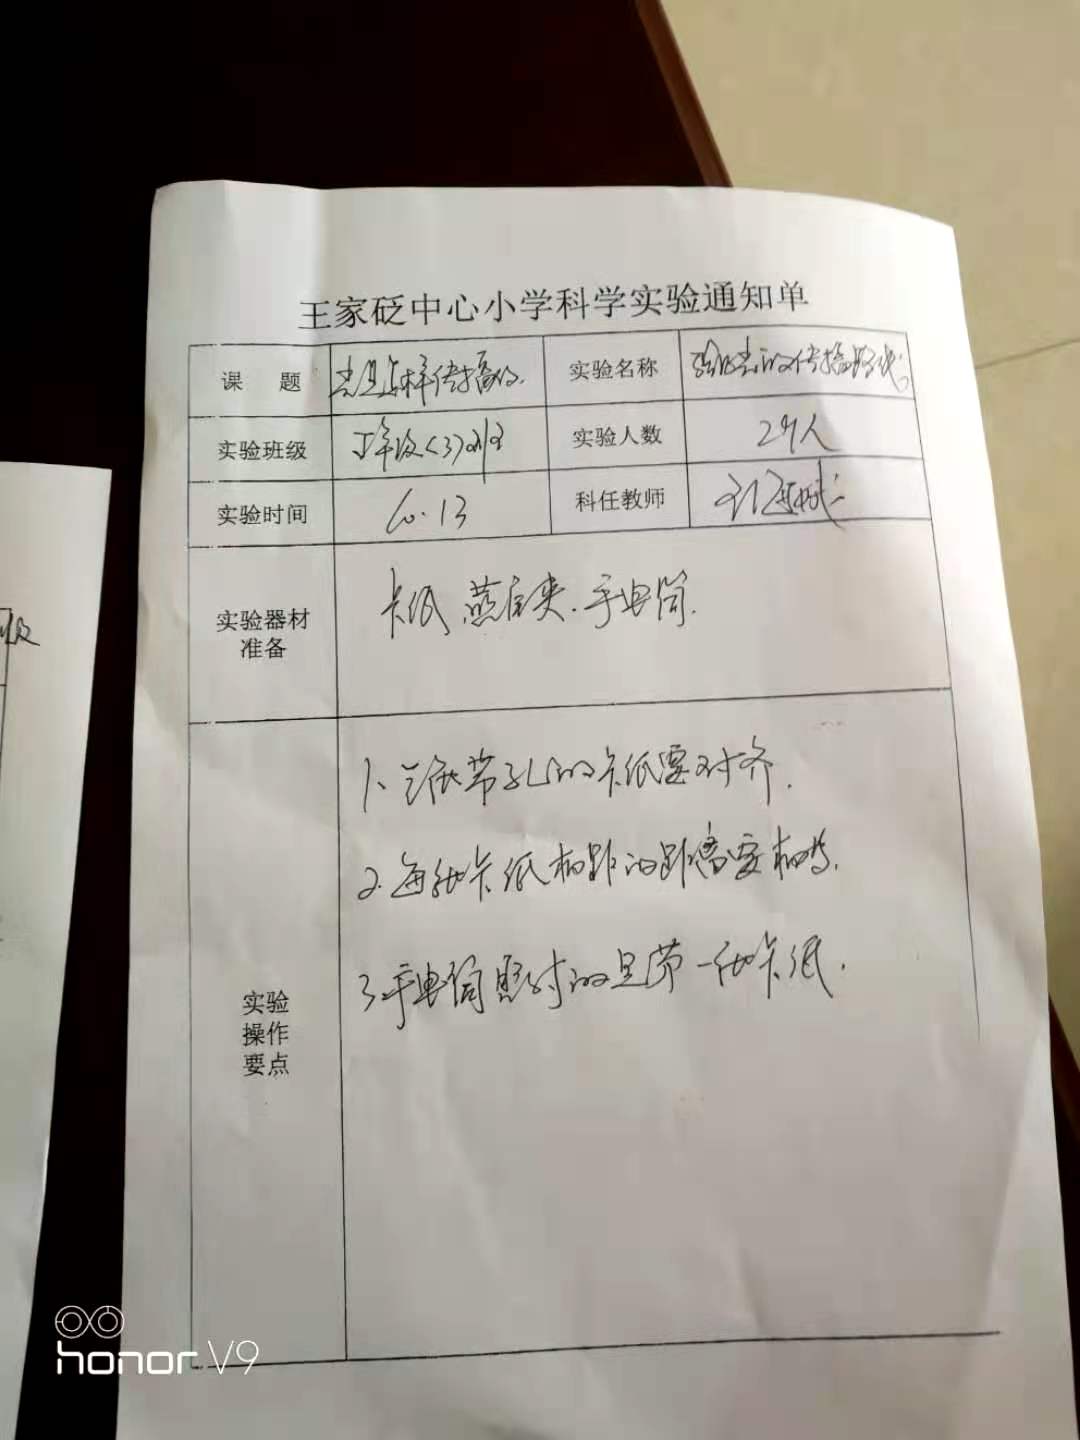 王家砭中心小学科学实验通知单
课 题 光是怎样传播的. 实验名称 验证光的传播路线
实验班级 五年级(3)班 实验人数 29人
实验时间 10.13 科任教师
实验器材
准备
卡纸.燕尾夹.手电筒.
实验
操作
要点
1、三张带孔的卡纸要对齐.
2.每张卡纸相距的距离要相等.
3.手电筒照射的是第一张卡纸.
honor V9